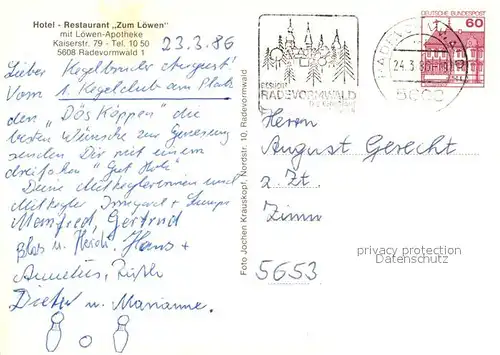 Hotel - Restaurant „Zum Löwen"
mit Löwen-Apotheke
Kaiserstr. 79 - Tel. 10 50
5608 Radevormwald 1
23.3.86
Lieber Kegelbruder August!
Vom 1. Kegelclub am Platz
den „Dös Köppen" die
besten Wünsche zur Genesung
senden Dir mit einem
dreifachen „Gut Holz"
Deine Mitkeglerinnen und
Mitkegler Irmgard +
Manfred, Gertrud
u. Heidi, Hans +
Dieter u. Marianne.
Foto Jochen Krauskopf, Nordstr. 10, Radevormwald
RADEVORMWALD
DEUTSCHE BUNDESPOST
60
24.3.86
Herrn
August Gerecht
z. Zt.
5653
privacy protection
Datenschutz